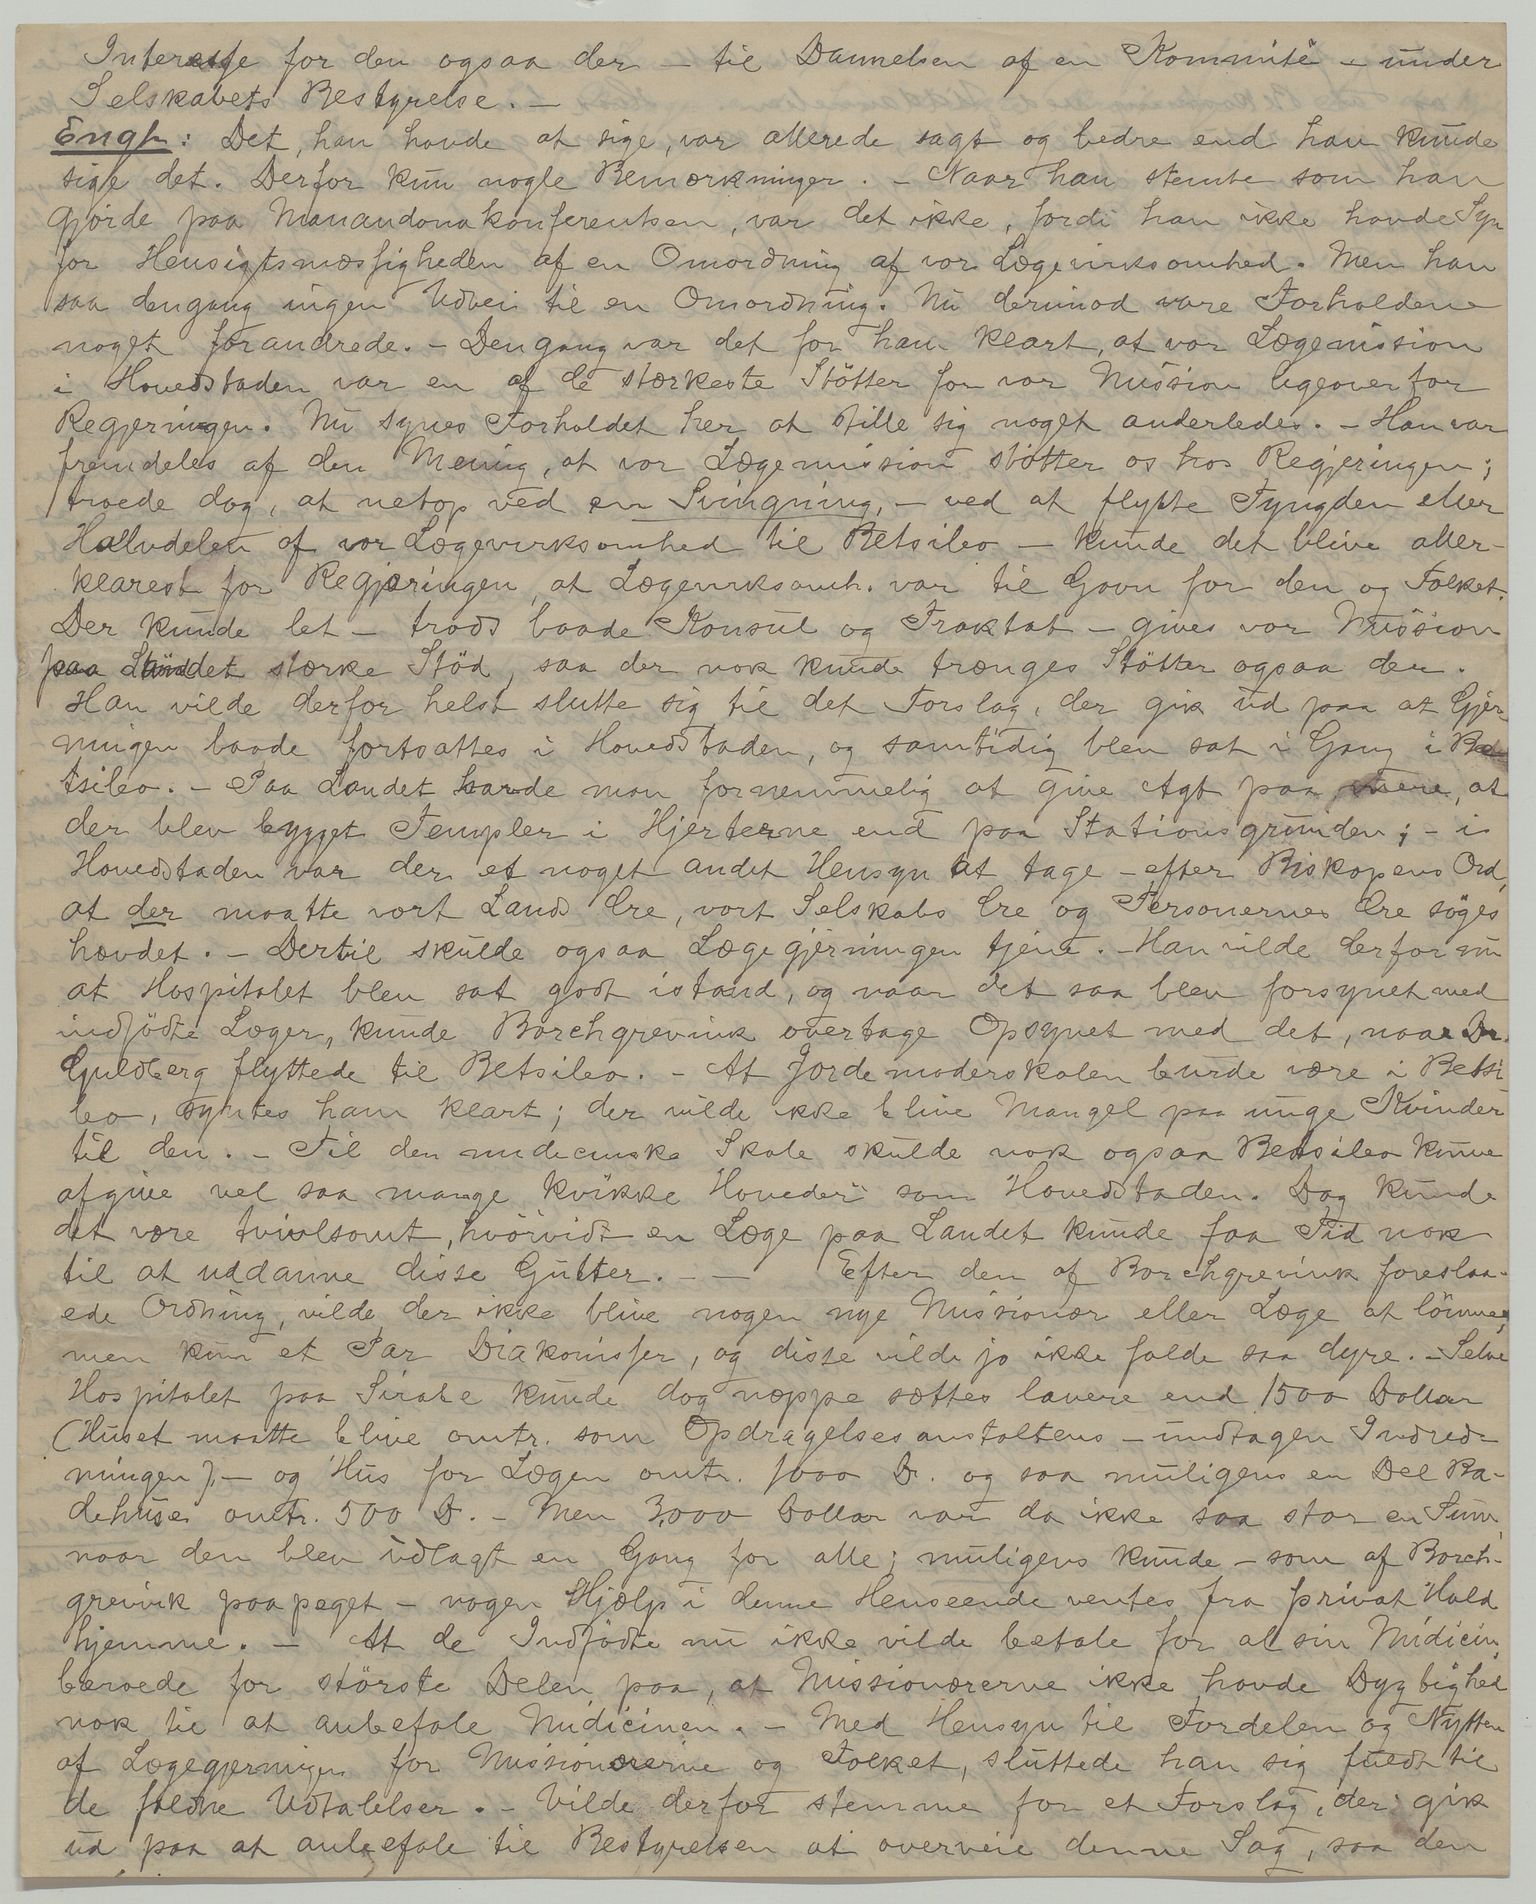 Interesse for den ogsaa der – til Dannelsen af en Kommité – under
Selskabets Bestyrelse. –
Engh: Det, han havde at sige, var allerede sagt og bedre end han kunde
sige det. Derfor kun nogle Bemærkninger. – Naar han stemte som han
gjorde paa Manandonakonferentsen, var det ikke, fordi han ikke havde Syn
for Hensigtsmæssigheden af en Omordning af vor Lægevirksomhed. Men han
saa dengang ingen Udvei til en Omordning. Nu derimod vare Forholdene
noget forandrede. – Dengang var det for ham klart, at vor Lægemission
i Hovedstaden var en af de stærkeste Støtter for vor Mission ligeoverfor
Regjeringen. Nu synes Forholdet her at stille sig noget anderledes. – Han var
fremdeles af den Mening, at vor Lægemission støtter os hos Regjeringen;
troede dog, at netop ved en Svingning, – ved at flytte Tyngden eller
Halvdelen af vor Lægevirksomhed til Betsileo – kunde det blive aller-
klarest for Regjeringen, at Lægevirksomh. var til Gavn for den og Folket.
Der kunde let – trods baade Konsul og Traktat – gives vor Mission
paa Landet stærke Stød, saa der nok kunde trænges Støtter ogsaa der.
Han vilde derfor helst slutte sig til det Forslag, der gik ud paa at Gjer-
ningen baade fortsattes i Hovedstaden, og samtidig blev sat i Gang i Be-
tsileo. – Paa Landet havde man fornemmelig at give Agt paa mere, at
der blev bygget Templer i Hjerterne end paa Stationsgrunden; – i
Hovedstaden var der et noget andet Hensyn at tage – efter Biskopens Ord,
at der maatte vort Lands Ære, vort Selskabs Ære og Personernes Ære søges
hævdet. – Dertil skulde ogsaa Lægegjerningen tjene. – Han vilde derfor nu
at Hospitalet blev sat godt istand, og naar det saa blev forsynet med
indfødte Læger, kunde Borchgrevink overtage Opsynet med det, naar Dr.
Guldberg flyttede til Betsileo. – At Jordemoderskolen burde være i Betsi
leo, syntes ham klart; der vilde ikke blive Mangel paa unge Kvinder
til den. – Til den medicinske Skole skulde nok ogsaa Betsileo kunne
afgive vel saa mange kvikke Hoveder som Hovedstaden. Dog kunde
det være tvivlsomt, hvorvidt en Læge paa Landet kunde faa Tid nok
til at uddanne disse Gutter. – – Efter den af Borchgrevink foreslaa-
ede Ordning, vilde der ikke blive nogen nye Missionær eller Læge at lønne,
men kun et Par Diakonisser, og disse vilde jo ikke falde saa dyre. – Selve
Hospitalet paa Sirabe kunde dog næppe sættes lavere end 1500 Dollar
(Huset maatte blive omtr. som Opdragelsesanstaltens – undtagen Indred-
ningen). – og Hus for Lægen omtr. 1000 D. og saa muligens en Del Ba-
dehuse omtr. 500 D. – Men 3,000 Dollar var da ikke saa stor en Sum,
naar den blev udlagt en Gang for alle; muligens kunde – som af Borch-
grevink paapeget – nogen Hjælp i denne Henseende ventes fra privat Hold
hjemme. – At de Indfødte nu ikke vilde betale for al sin Midicin,
beroede for største Delen paa, at Missionærerne ikke havde Dygtighed
nok til at anbefale Midicinen. – Med Hensyn til Fordelen og Nytten
af Lægegjerningen for Missionærerne og Folket, sluttede han sig fuldt til
de faldne Udtalelser. – Vilde derfor stemme for et Forslag, der gik
ud paa at anbefale til Bestyrelsen at overveie denne Sag, saa den